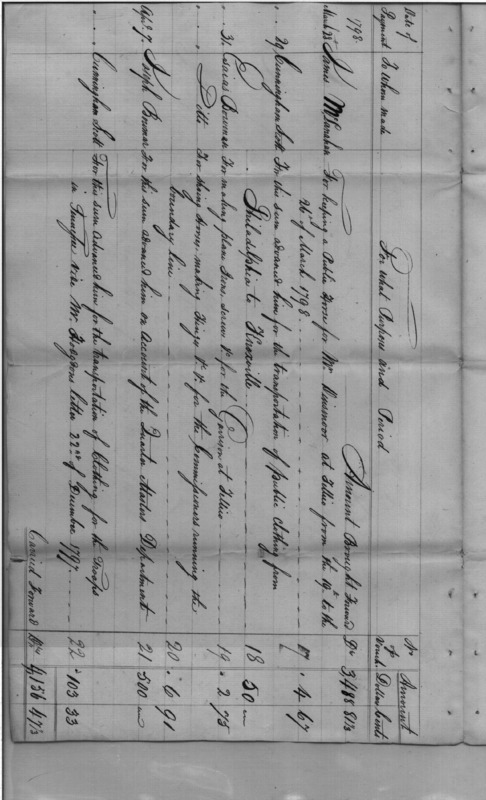 Date of Payment
To Whom made
For what Purpose and Period
No. of Vouch.
Amount
Dollars Cents
1798
Amount Brought Forward Drs 3,488 81½
March 23d James McClanahan For keeping a Public Horse for Mr Dinsmoor at Tellico from the 19th to the
26th of March 1798 17 " 4 67
" 29 Cunningham Scott For this sum advanced him for the transportation of public clothing from
Philadelphia to Knoxville 18 50 "
" 31 Isaias Bowman For making plane Irons, screws &c for the Garrison at Tellico 19 " 2 75
" " Ditto For shoeing Horses, making Hinges &c &c for the Commissioners running the
boundary line 20 " 6 91
April 7 Joseph Bowmar For this sum advanced him on account of the Quarter Masters Department 21 500 "
" " Cunningham Scott For this sum advanced him for the transportation of Clothing for the Troops
in Tennessee vide Mr. Hodgdons letter 22nd of December 1797 22 " 103 33
Carried Forward Drs 4,156 47½